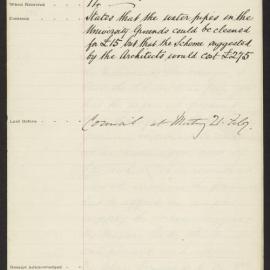 When Received
Contents
States that the water pipes in the
University Grounds could be cleaned
for £15, but that the Scheme suggested
by the Architects would cost £295
Laid Before
Council, at Meeting 21. Feby.
Receipt Acknowledged